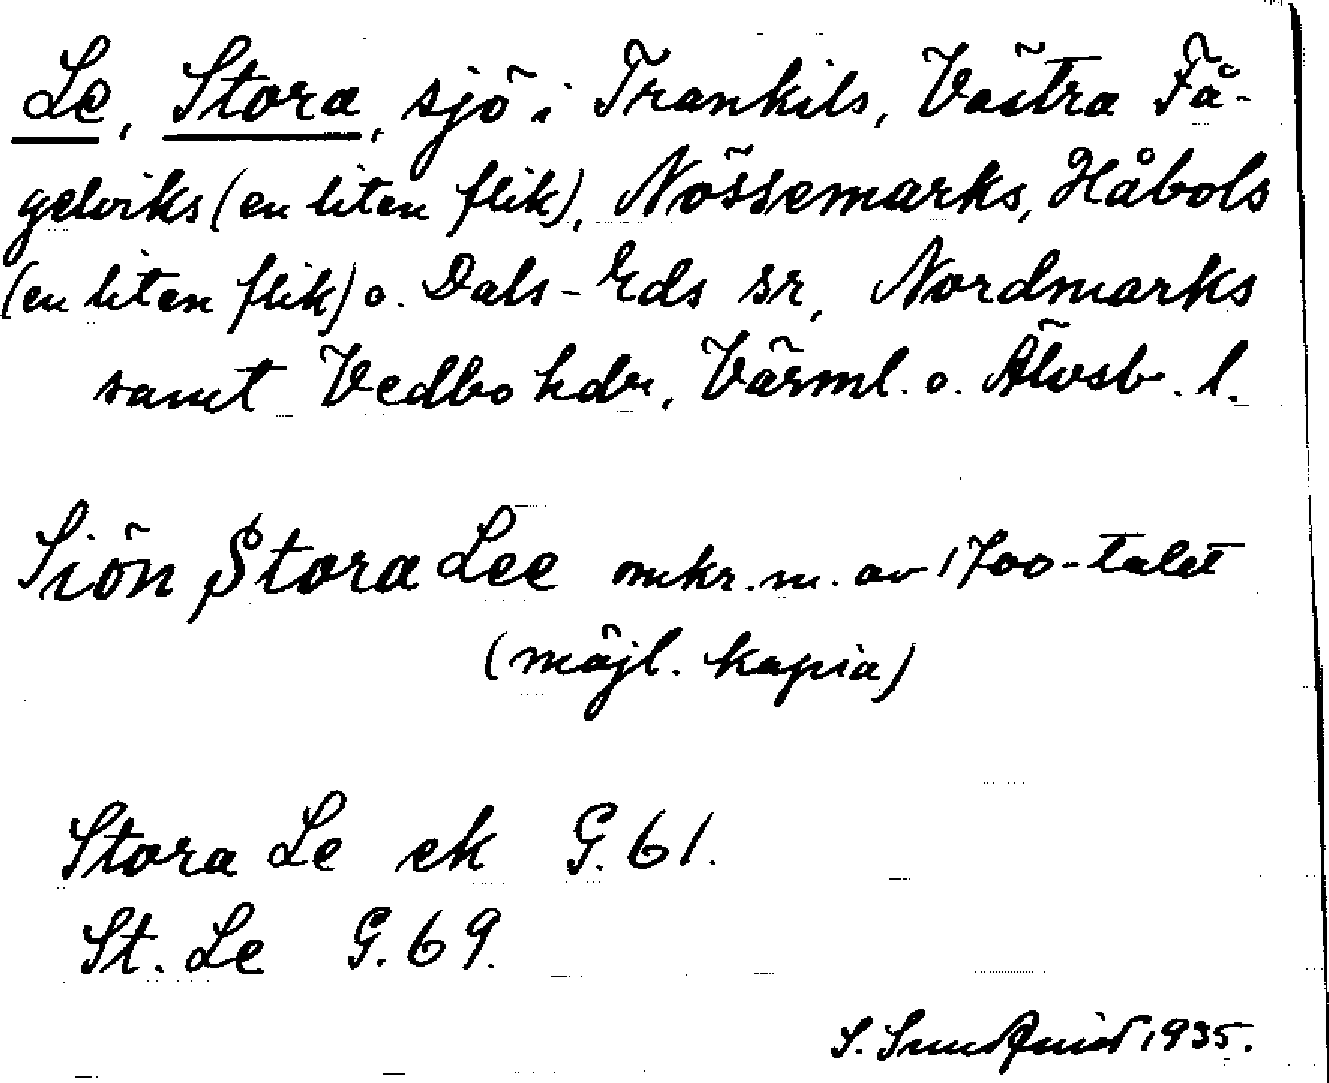 Le, Stora, sjö i Trankils, Västra Få-
gelviks (en liten flik), Nössemarks, Håbols
(en liten flik) o. Dals-Eds sr, Nordmarks
samt Vedbo hdr, Värml. o. Älvsb. l.
Siön Stora Lee omkr. m. av 1700-talet
(möjl. kopia)
Stora Le ek G. 61.
St. Le G. 69.
S. Sundquist 1935.